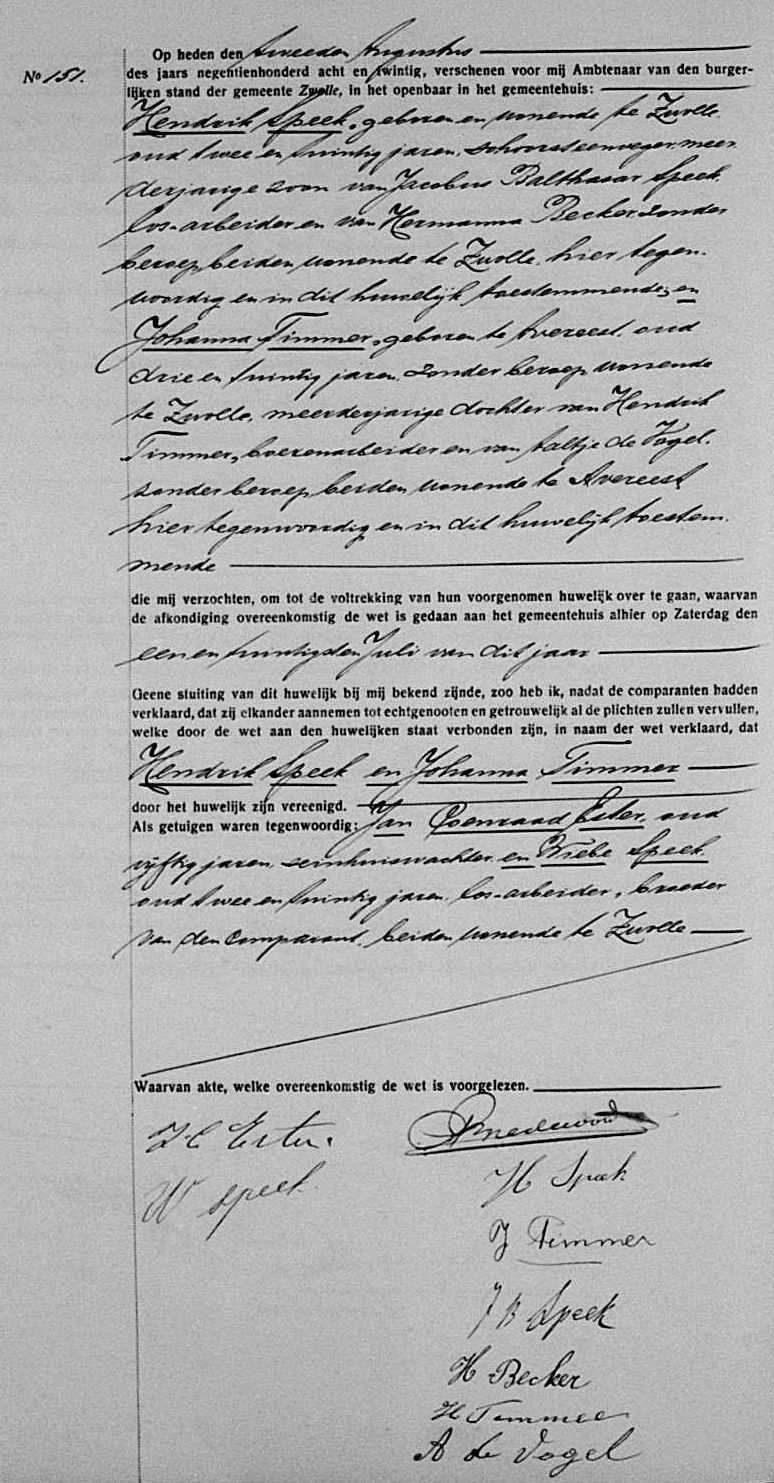 No 151.
Op heden den tweeden Augustus
des jaars negentienhonderd acht en twintig, verschenen voor mij Ambtenaar van den burger-
lijken stand der gemeente Zwolle, in het openbaar in het gemeentehuis:
Hendrik Speek, geboren en wonende te Zwolle,
oud twee en twintig jaren, schoorsteenveger, meer-
derjarige zoon van Jacobus Balthasar Speek,
los-arbeider en van Hermanna Becker, zonder
beroep, beiden wonende te Zwolle, hier tegen-
woordig en in dit huwelijk toestemmende; en
Johanna Timmer, geboren te Avereest, oud
drie en twintig jaren, zonder beroep, wonende
te Zwolle, meerderjarige dochter van Hendrik
Timmer, boerenarbeider en van Aaltje de Vogel,
zonder beroep, beiden wonende te Avereest,
hier tegenwoordig en in dit huwelijk toestem-
mende
die mij verzochten, om tot de voltrekking van hun voorgenomen huwelijk over te gaan, waarvan
de afkondiging overeenkomstig de wet is gedaan aan het gemeentehuis alhier op Zaterdag den
een en twintigsten Juli van dit jaar
Geene stuiting van dit huwelijk bij mij bekend zijnde, zoo heb ik, nadat de comparanten hadden
verklaard, dat zij elkander aannemen tot echtgenooten en getrouwelijk al de plichten zullen vervullen,
welke door de wet aan den huwelijken staat verbonden zijn, in naam der wet verklaard, dat
Hendrik Speek en Johanna Timmer
door het huwelijk zijn vereenigd.
Als getuigen waren tegenwoordig: Jan Coenraad Ester, oud
vijftig jaren, seinhuiswachter en Wiebe Speek,
oud twee en twintig jaren, los-arbeider, broeder
van den comparant, beiden wonende te Zwolle
Waarvan akte, welke overeenkomstig de wet is voorgelezen.
J C Ester.
W Speek
H Speek
J Timmer
J B Speek
H Becker
H Timmer
A de Vogel